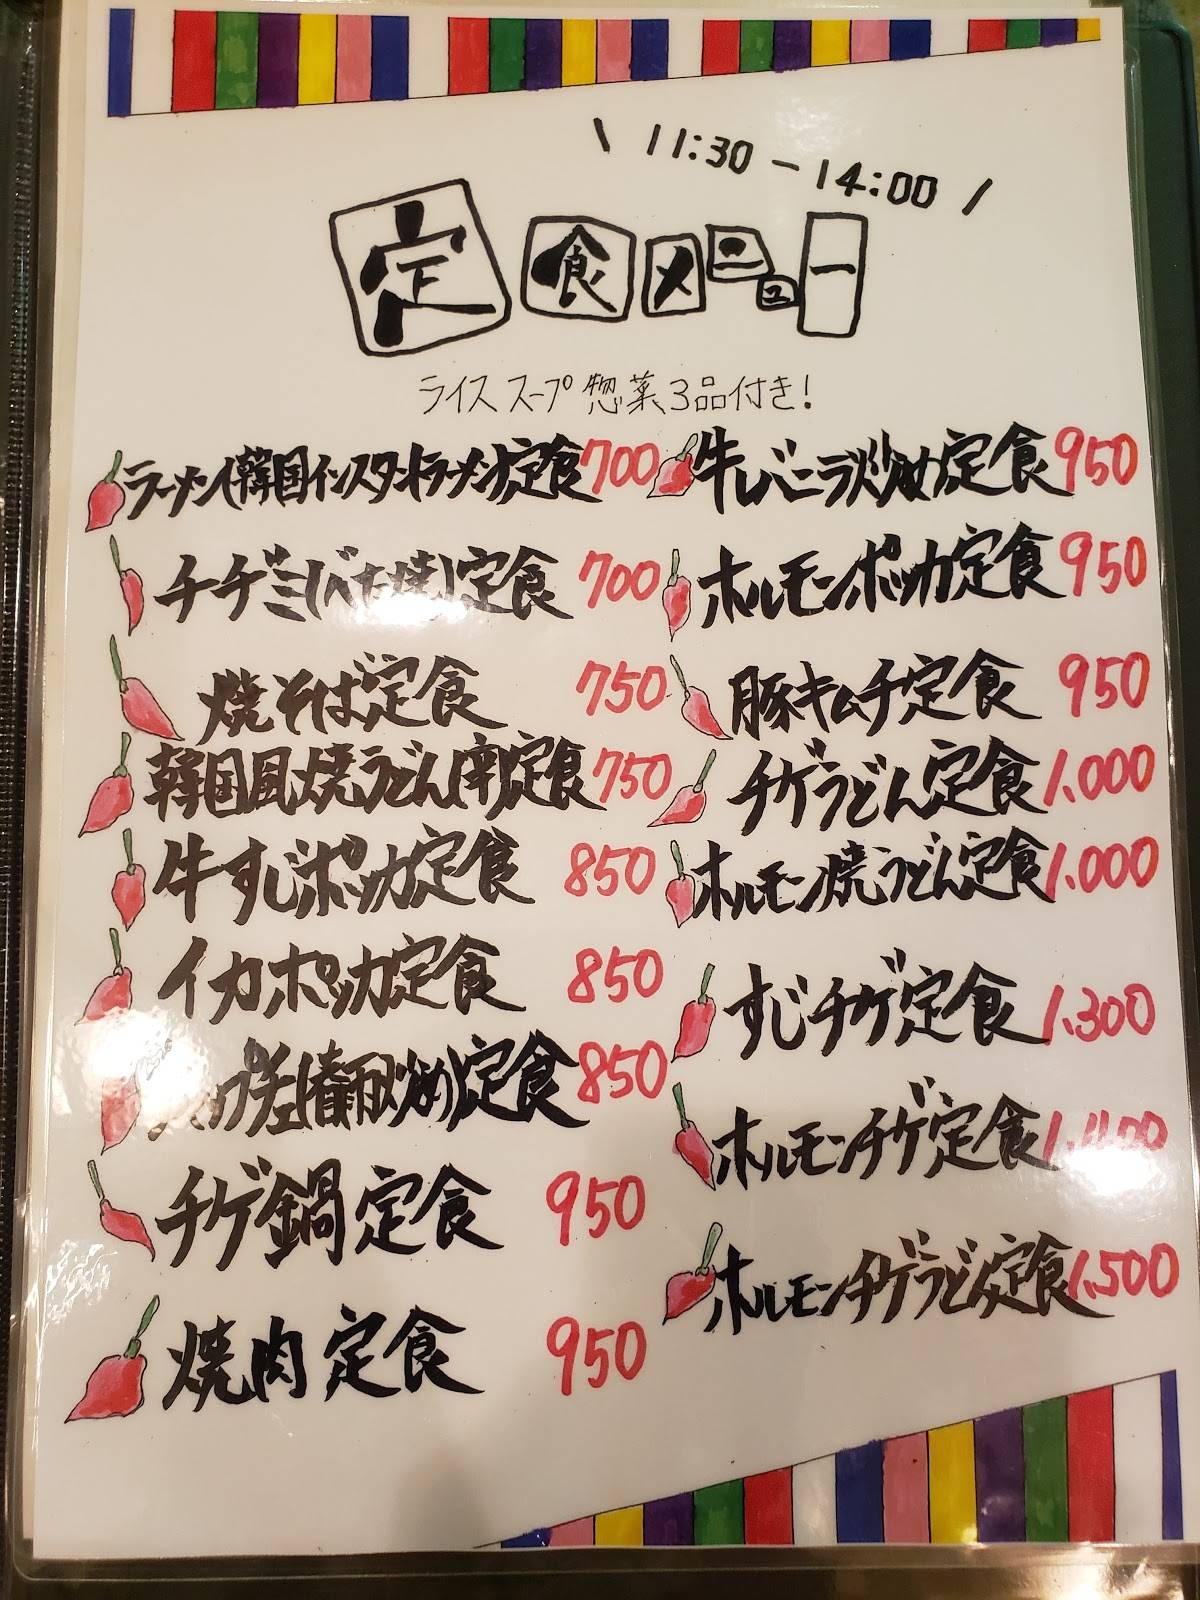 \ 11:30 - 14:00 /
定食メニュー
ライス スープ 惣菜3品付き!
ラーメン(韓国インスタントラーメン)定食 700
チヂミ(ねぎ焼)定食 700
焼そば定食 750
韓国風焼うどん(辛)定食 750
牛すじポッカ定食 850
イカポッカ定食 850
(春雨炒め)定食 850
チゲ鍋定食 950
焼肉定食 950
牛レバニラ炒め定食 950
ホルモンポッカ定食 950
豚キムチ定食 950
チゲうどん定食 1.000
ホルモン焼うどん定食 1.000
すじチゲ定食 1.300
ホルモンチゲ定食
ホルモンチゲうどん定食 1.500